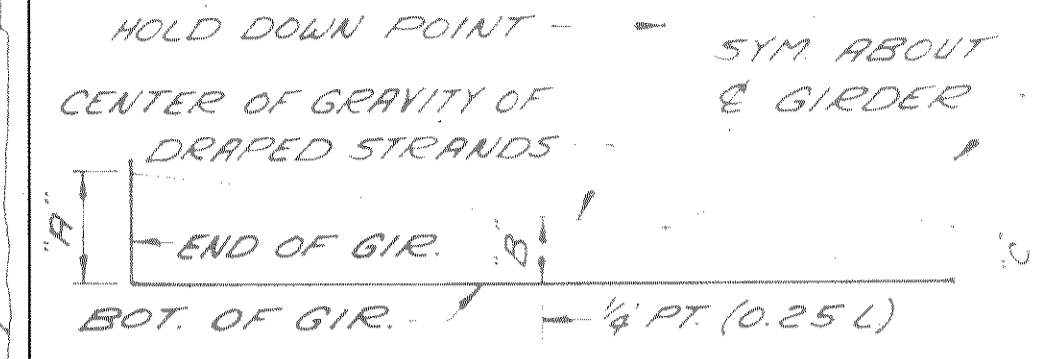 HOLD DOWN POINT
SYM. ABOUT
℄ GIRDER
CENTER OF GRAVITY OF
DRAPED STRANDS
"A"
END OF GIR.
"B"
"C"
BOT. OF GIR.
1/4 PT. (0.25 L)